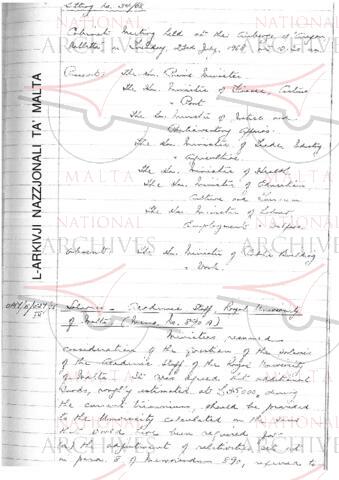 Sitting No. 34/68
Cabinet Meeting held at the Auberge d'Aragon
Valletta on Tuesday, 23rd July, 1968 at 10.30 a.m.
Present: The Hon. Prime Minister
The Hon. Minister of Finance, Customs
& Port
The Hon. Minister of Justice and
Parliamentary Affairs
The Hon. Minister of Trade, Industry
& Agriculture
The Hon. Minister of Health
The Hon. Minister of Education,
Culture and Tourism
The Hon. Minister of Labour
Employment & Welfare
Absent: The Hon. Minister of Public Building
& Works.
L-ARKIVJI NAZZJONALI TA' MALTA
NATIONAL
MALTA
ARCHIVES
Salaries - Academic Staff, Royal University
of Malta, (Memo. No. 890 A)
Ministers resumed
consideration of the question of the salaries
of the Academic Staff of the Royal University
of Malta. It was agreed that additional
funds, roughly estimated at £35,000, during
the current triennium, should be provided
to the University calculated on the
that would have been required for
the adjustment of relativities set out
in para. 8 of Memorandum 890, referred to